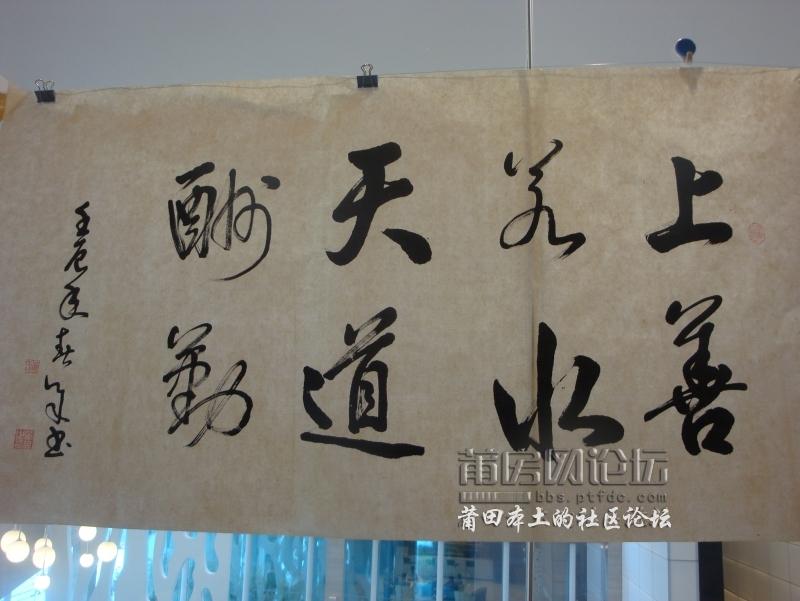 上善
若水
天道
酬勤
壬辰年春
书
莆房网论坛
bbs.ptfdc.com
莆田本土的社区论坛